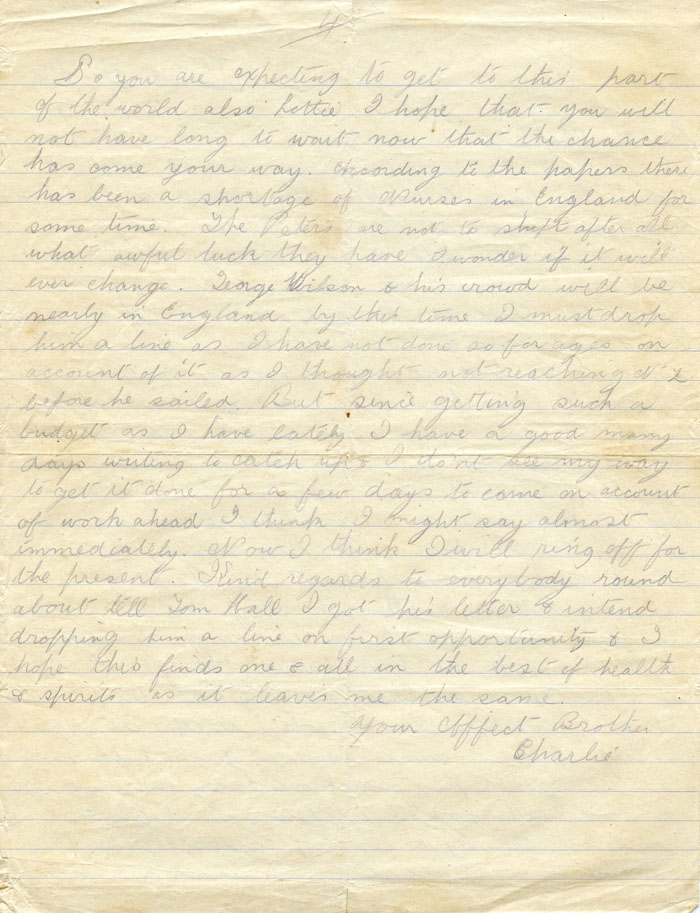 4
So you are expecting to get to this part
of the world also Lottie I hope that you will
not have long to wait now that the chance
has come your way. According to the papers there
has been a shortage of Nurses in England for
some time. The Peters are not to shift after all
what awful luck they have I wonder if it will
ever change. George Wilson & his crowd will be
nearly in England by this time I must drop
him a line as I have not done so for ages on
account of it as I thought not reaching N.Z
before he sailed. But since getting such a
budget as I have lately I have a good many
days writing to catch up & I dont see my way
to get it done for a few days to come on account
of work ahead I think I might say almost
immediately. Now I think I will ring off for
the present. Kind regards to everybody round
about tell Tom Hall I got his letter & intend
dropping him a line on first opportunity & I
hope this finds one & all in the best of health
& spirits as it leaves me the same.
Your Affect Brother
Charlie